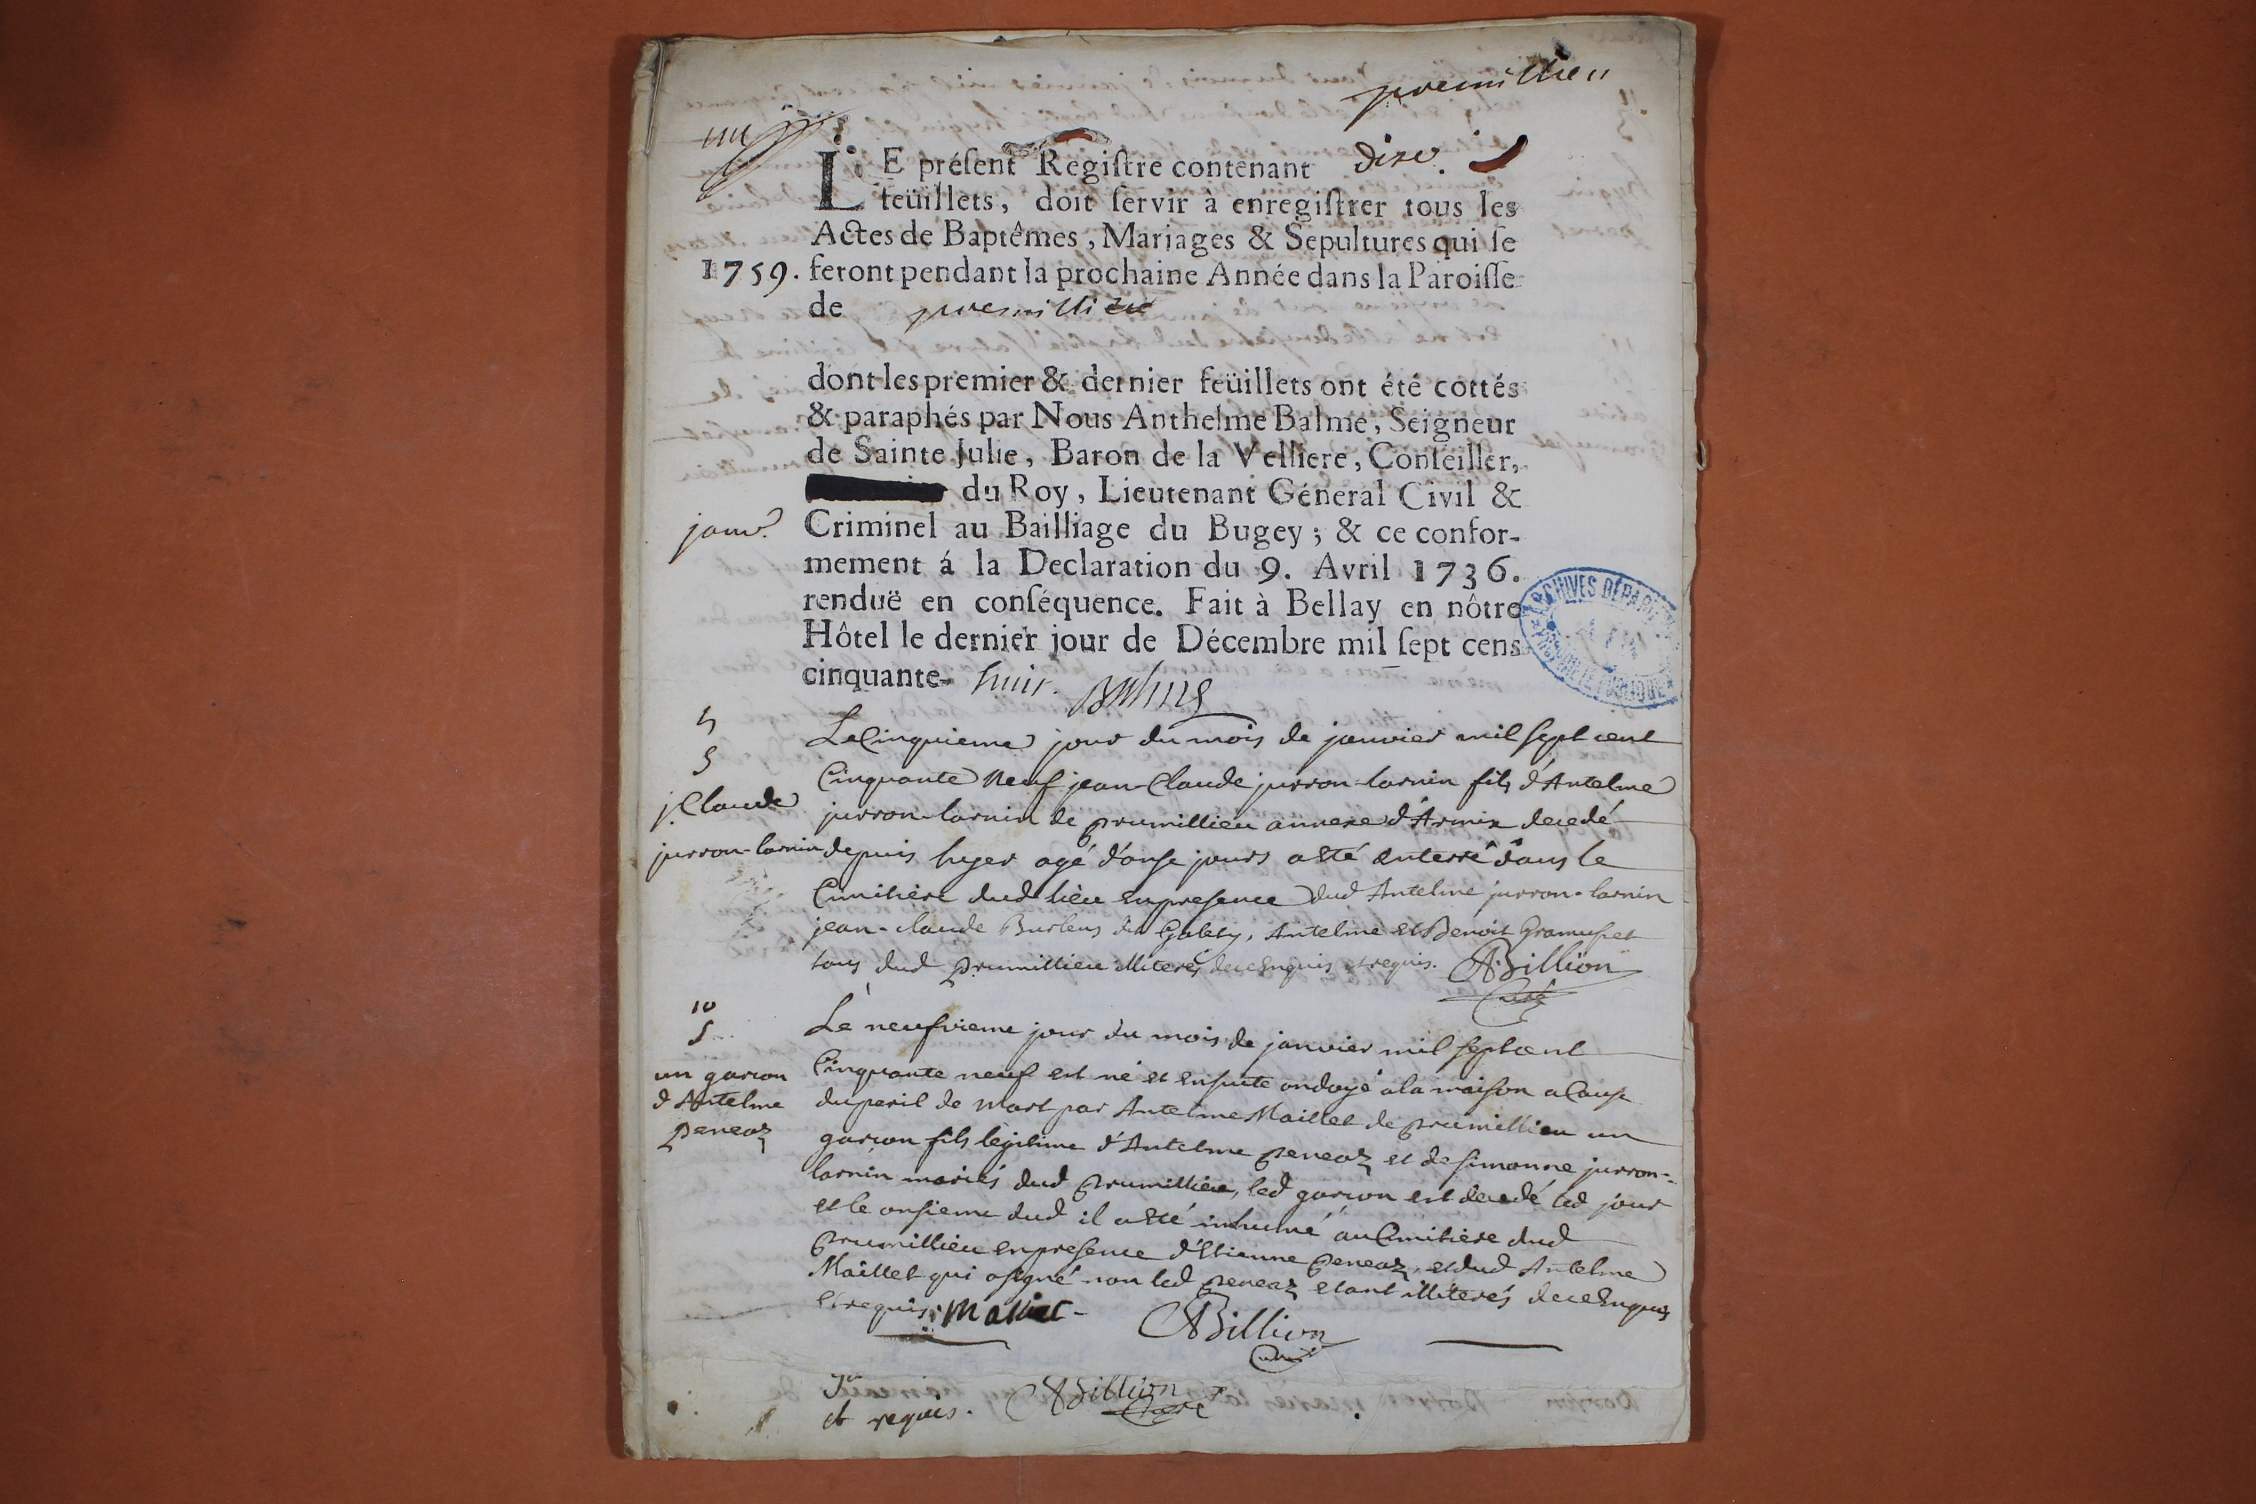 premillieu
LE préſent Regiſtre contenant dixe.
feüillets, doit ſervir à enregiſtrer tous les
Actes de Baptêmes, Mariages & Sepultures qui ſe
1759. feront pendant la prochaine Année dans la Paroiſſe
de premillieu
dont les premier & dernier feüillets ont été cottés
& paraphés par Nous Anthelme Balme, Seigneur
de Sainte Julie, Baron de la Velliere, Conſeiller,
du Roy, Lieutenant Géneral Civil &
janv.
Criminel au Bailliage du Bugey ; & ce confor-
mement á la Declaration du 9. Avril 1736.
renduë en conſéquence. Fait à Bellay en nôtre
Hôtel le dernier jour de Décembre mil ſept cens
cinquante- huit. Balme
ARCHIVES DÉPART
5
S
j. Claude
jurron-larnin
Le Cinquieme jour du mois de janvier mil sept cent
Cinquante Neuf jean-Claude jurron-larnin fils d'Antelme
jurron-larnin de prumillieu annexe d'Armix decedé
depuis hyer agé d'onse jours a été enterré dans le
Cimitière dud lieu en presence dud Antelme jurron-larnin
jean-claude Burlens du Gabety, Antelme et Benoit Gramuset
tous dud prumillieu illiterés de ce Enquis et requis. ABillion
Curé
10
S
un garcon
d'Antelme
peneaz
Le neufvieme jour du mois de janvier mil sept cent
Cinquante neuf est né et ensuite ondoyé a la maison a Cause
du peril de mort par Antelme Maillet de prumillieu un
garçon fils légitime d'Antelme peneaz et de simonne jurron-
larnin mariés dud prumillieu, led garçon est decedé led jour
et le onsieme dud il a été inhumé au Cimitiere dud
prumillieu en presence d'Etienne peneaz, et dud Antelme
Maillet qui a signé non led peneaz etant illiterés de ce Enquis
et requis. Maliet ABillion
Curé
et requis. ABillion
Curé